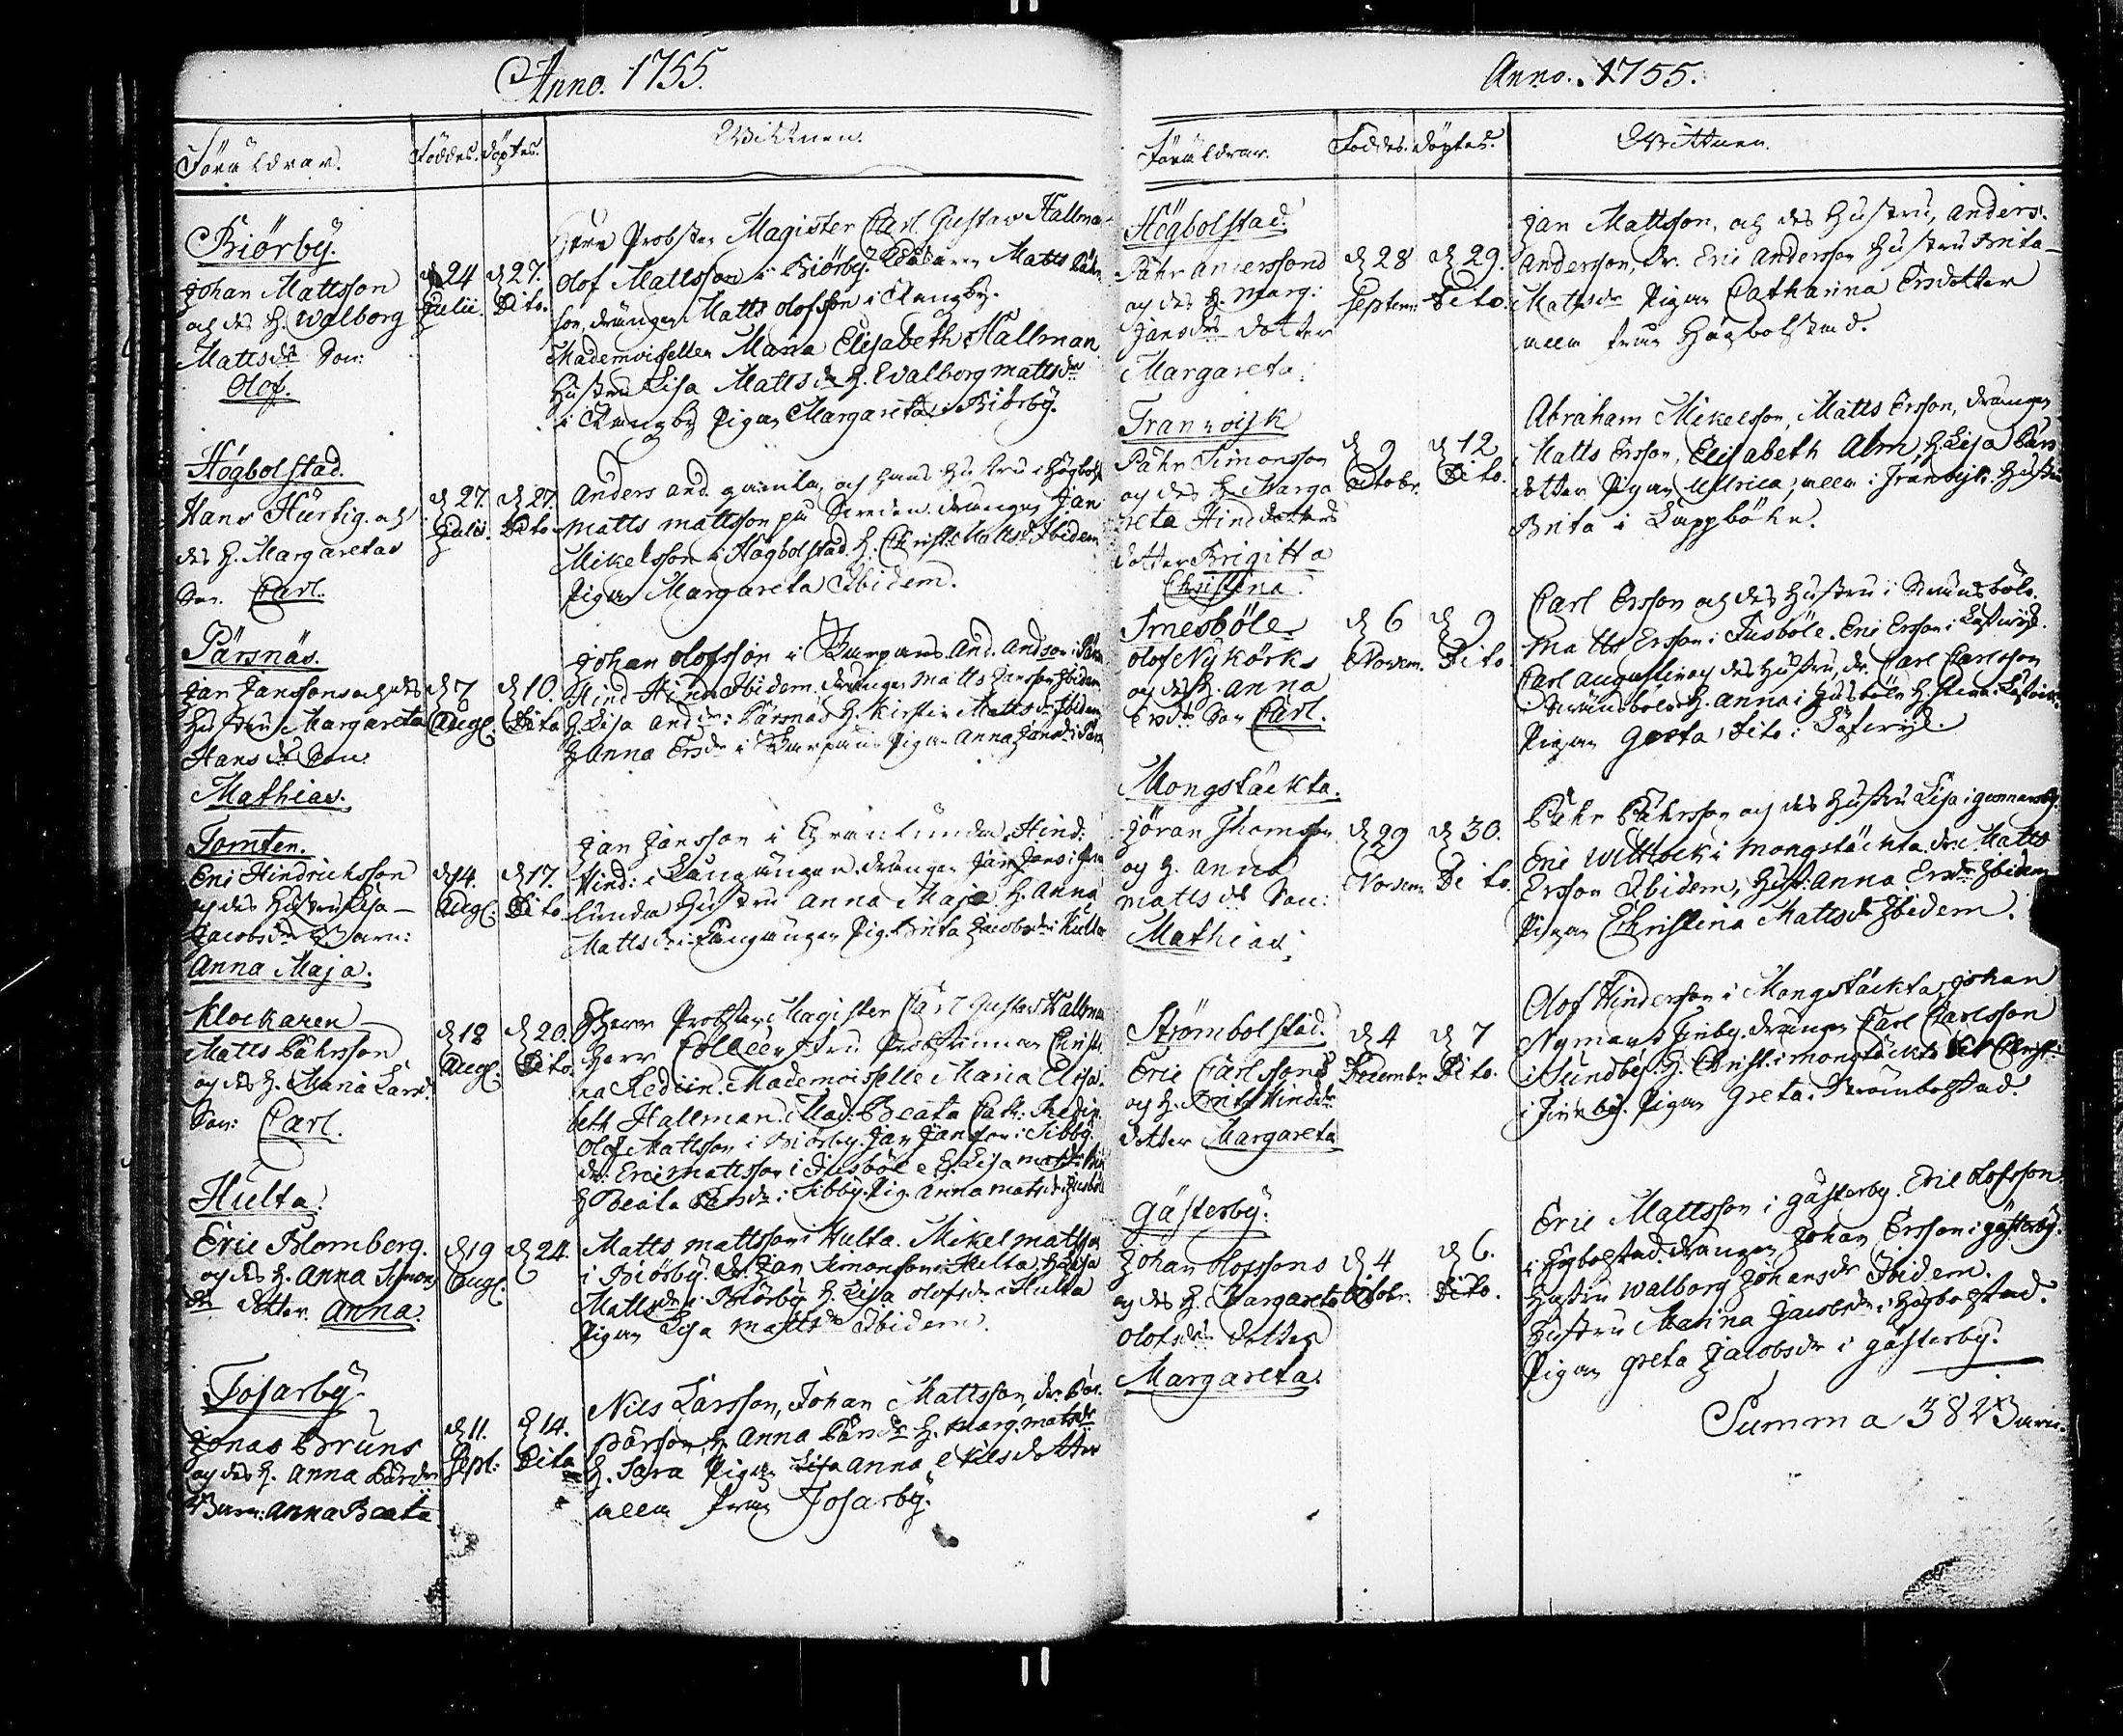 Anno. 1755.
Föräldrar. Föddes. Döptes. Wittnen.
Biörby.
Johan Mattsson
och des H. Walborg
Matts dr Son:
Olof.
d 24 Julii.
d 27. Dito.
Herr Probsten Magister Carl Gustav Hallman
Olof Mattsson i Biörby. Klockaren Matts Påhr
son, drängen Matts Olofsson i
Mademoisellen Maria Elisabeth Hallman
Hustru Lisa Matts dr H. Walborg matts dr
i Pigan Margareta i Biörby.
Högbolstad.
Hans Hurtig och
des H. Margaretas
Son. Carl.
d 27. Julii.
d 27. Dito
Anders And. gamla, och hans Hustru i Högbolst
Matts mattsson på drängen Jan
Mikelsson i Högbolstad. H. Christ. Matts d Ibidem
Pigan Margareta Ibidem.
Pärsnäs.
Jan Janssons och des
Hustru Margareta
Hans dr Son
Mathias.
d 7 Augl.
d 10. Dito
Johan Olofsson i And. Andson i Pärs
Hind Hind Ibidem. drängen Matts Jansson Ibidem
H. Lisa And dr i Pärsnäs H. Kirstin Matts dr Ibidem
H Anna Ers dr i Pigan Anna Jans d i Pärs
Tomten.
Eric Hindrichsson
och des Hustru Lisa
Jacobs dr Barn:
Anna Maja.
d 14. Augl.
d 17. Dito
Jan Jansson i Gränlunda. Hind:
Hind: i Långängen. drängen Jan Jans i Grän
lunda Hustru Anna Maja H. Anna
Matts dr i Långängen Pig. Brita Jacobs dr i Hulta
Klockaren
Matts Påhrsson
och des H. Maria Lars d.
Son: Carl.
d 18 Augl.
d 20. Dito.
Herr Probsten Magister Carl Gustav Hallman
Herr Probstinnan Christi
na Rediin. Mademoiselle Maria Elisa
beth Hallman. Mad: Beata Cath. Rediin
Olof Mattsson i Biörby. Jan Jansson i Sibby.
dr. Eric mattsson i H. Lisa matts dr
H Beata dr i Sibby. Pig. Anna mats dr
Hulta.
Eric Blomberg.
och des H. Anna Simons
dr dotter Anna.
d 19 augl.
d 24.
Matts mattsson i Hulta. Mikel matsson
i Biörby. dr. Jan Simonsson i Hulta, H Lisa
Matts dr i Biörby H Lisa Olofs dr i Hulta
Pigan Lisa Matts dr Ibidem.
Tosarby.
Jonas Bruns
och des H. Anna Pärs dr
Barn: Anna Beata
d 11. Sept:
d 14. Dito
Nils Larsson, Johan Mattsson, dr. Pär
Pärsson, H. Anna Pärs dr H. Marg. mats dr
H. Sara Pigan Lisa Anna Nilsdotter
alla från Tosarby.
Anno. 1755.
Föräldrar. Föddes. Döptes. Wittnen.
Högbolstad.
Pähr Anderssons
och des H. Marg:
Jans dr dotter
Margareta.
d 28 Septem:
d 29. Dito.
Jan Mattsson, och des Hustru, Anders
Andersson, dr. Eric Andersson Hustru Brita
Mats dr Pigan Catharina Ersdotter
alla från Högbolstad.
Tranwijk
Pähr Simonsson
och des H. Marga
reta Hinddotters
dotter Brigitta
Christina.
d 9 octobr.
d 12 Dito.
Abraham Mikelsson, Matts Ersson, drängen
Matts Ersson, Elisabeth Alm, H Lisa Pärs
dotter Pigan Ulrica, alla i Tranwijk. Hustru
Brita i Lappböhle.
Smesböle
Olof Nykörks
och des H. Anna
Ers dr Son Carl.
d 6 Novem.
d 9 Dito
Carl Ersson och des Hustru i
Matts Ersson i Eric Ersson i
Carl Augustin och des Hustru, dr. Carl Carlsson
H. Anna i
Pigan Greta Dito i
Mongstäckta.
Jöran Thomsson
och H. Anna
matts dr Son:
Mathias.
d 29 Novem.
d 30. Dito.
Pähr Pährsson och des Hustru Lisa i
Eric Wittlock i Mongstäckta. dr. Matts
Ersson Ibidem, Hust: Anna Ers dr Ibidem
Pigan Christina Matts dr Ibidem.
Strömbolstad.
Eric Carlssons
och H. Brita Hind dr
dotter Margareta
d 4 Decembr.
d 7 Dito.
Olof Hindersson i Mongstäckta, Johan
Nyman i Finby. drängen Carl Carlsson
i Sundby. H. Christ: i mongstäckta Christ:
i Finby. Pigan Greta i Strömbolstad.
Gästerby.
Johan Olofssons
och des H. Margareta
Olofs dr dotter
Margareta.
d 4 Octobr.
d 6. Dito.
Eric Mattsson i gästerby. Eric Olofsson
i Högbolstad. drängen Johan Ersson i gästerby.
Hustru Walborg Johans dr Ibidem.
Hustru Marina Jacobs dr i Högbolstad.
Pigan Greta Jacobs dr i gästerby.
Summa 38 Barn.